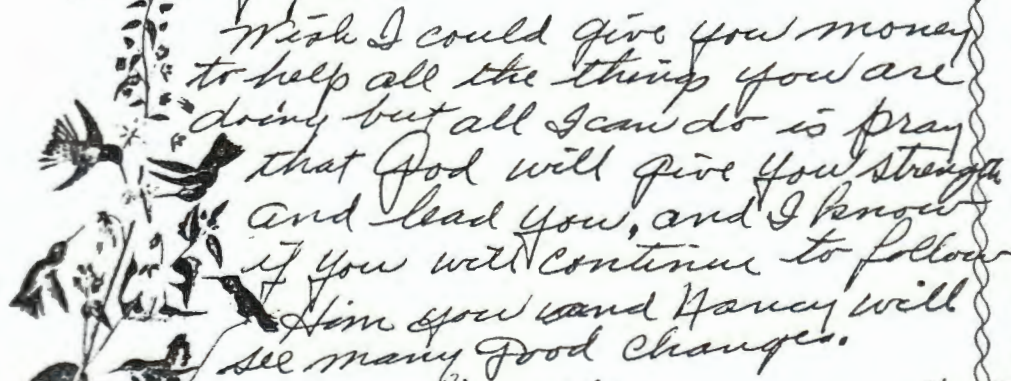 Wish I could give you money
to help all the things you are
doing but all I can do is pray
that God will give you strength
and lead you, and I know
if you will continue to follow
Him you and Nancy will
see many good changes.